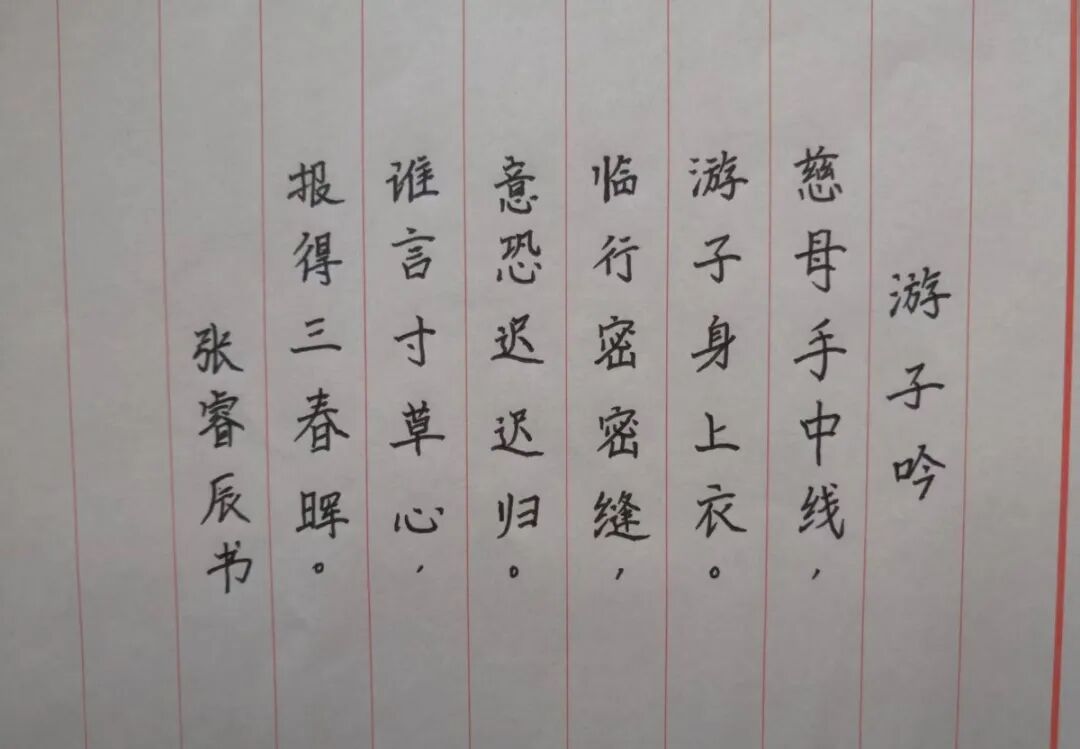 游子吟
慈母手中线，
游子身上衣。
临行密密缝，
意恐迟迟归。
谁言寸草心，
报得三春晖。
张睿辰书